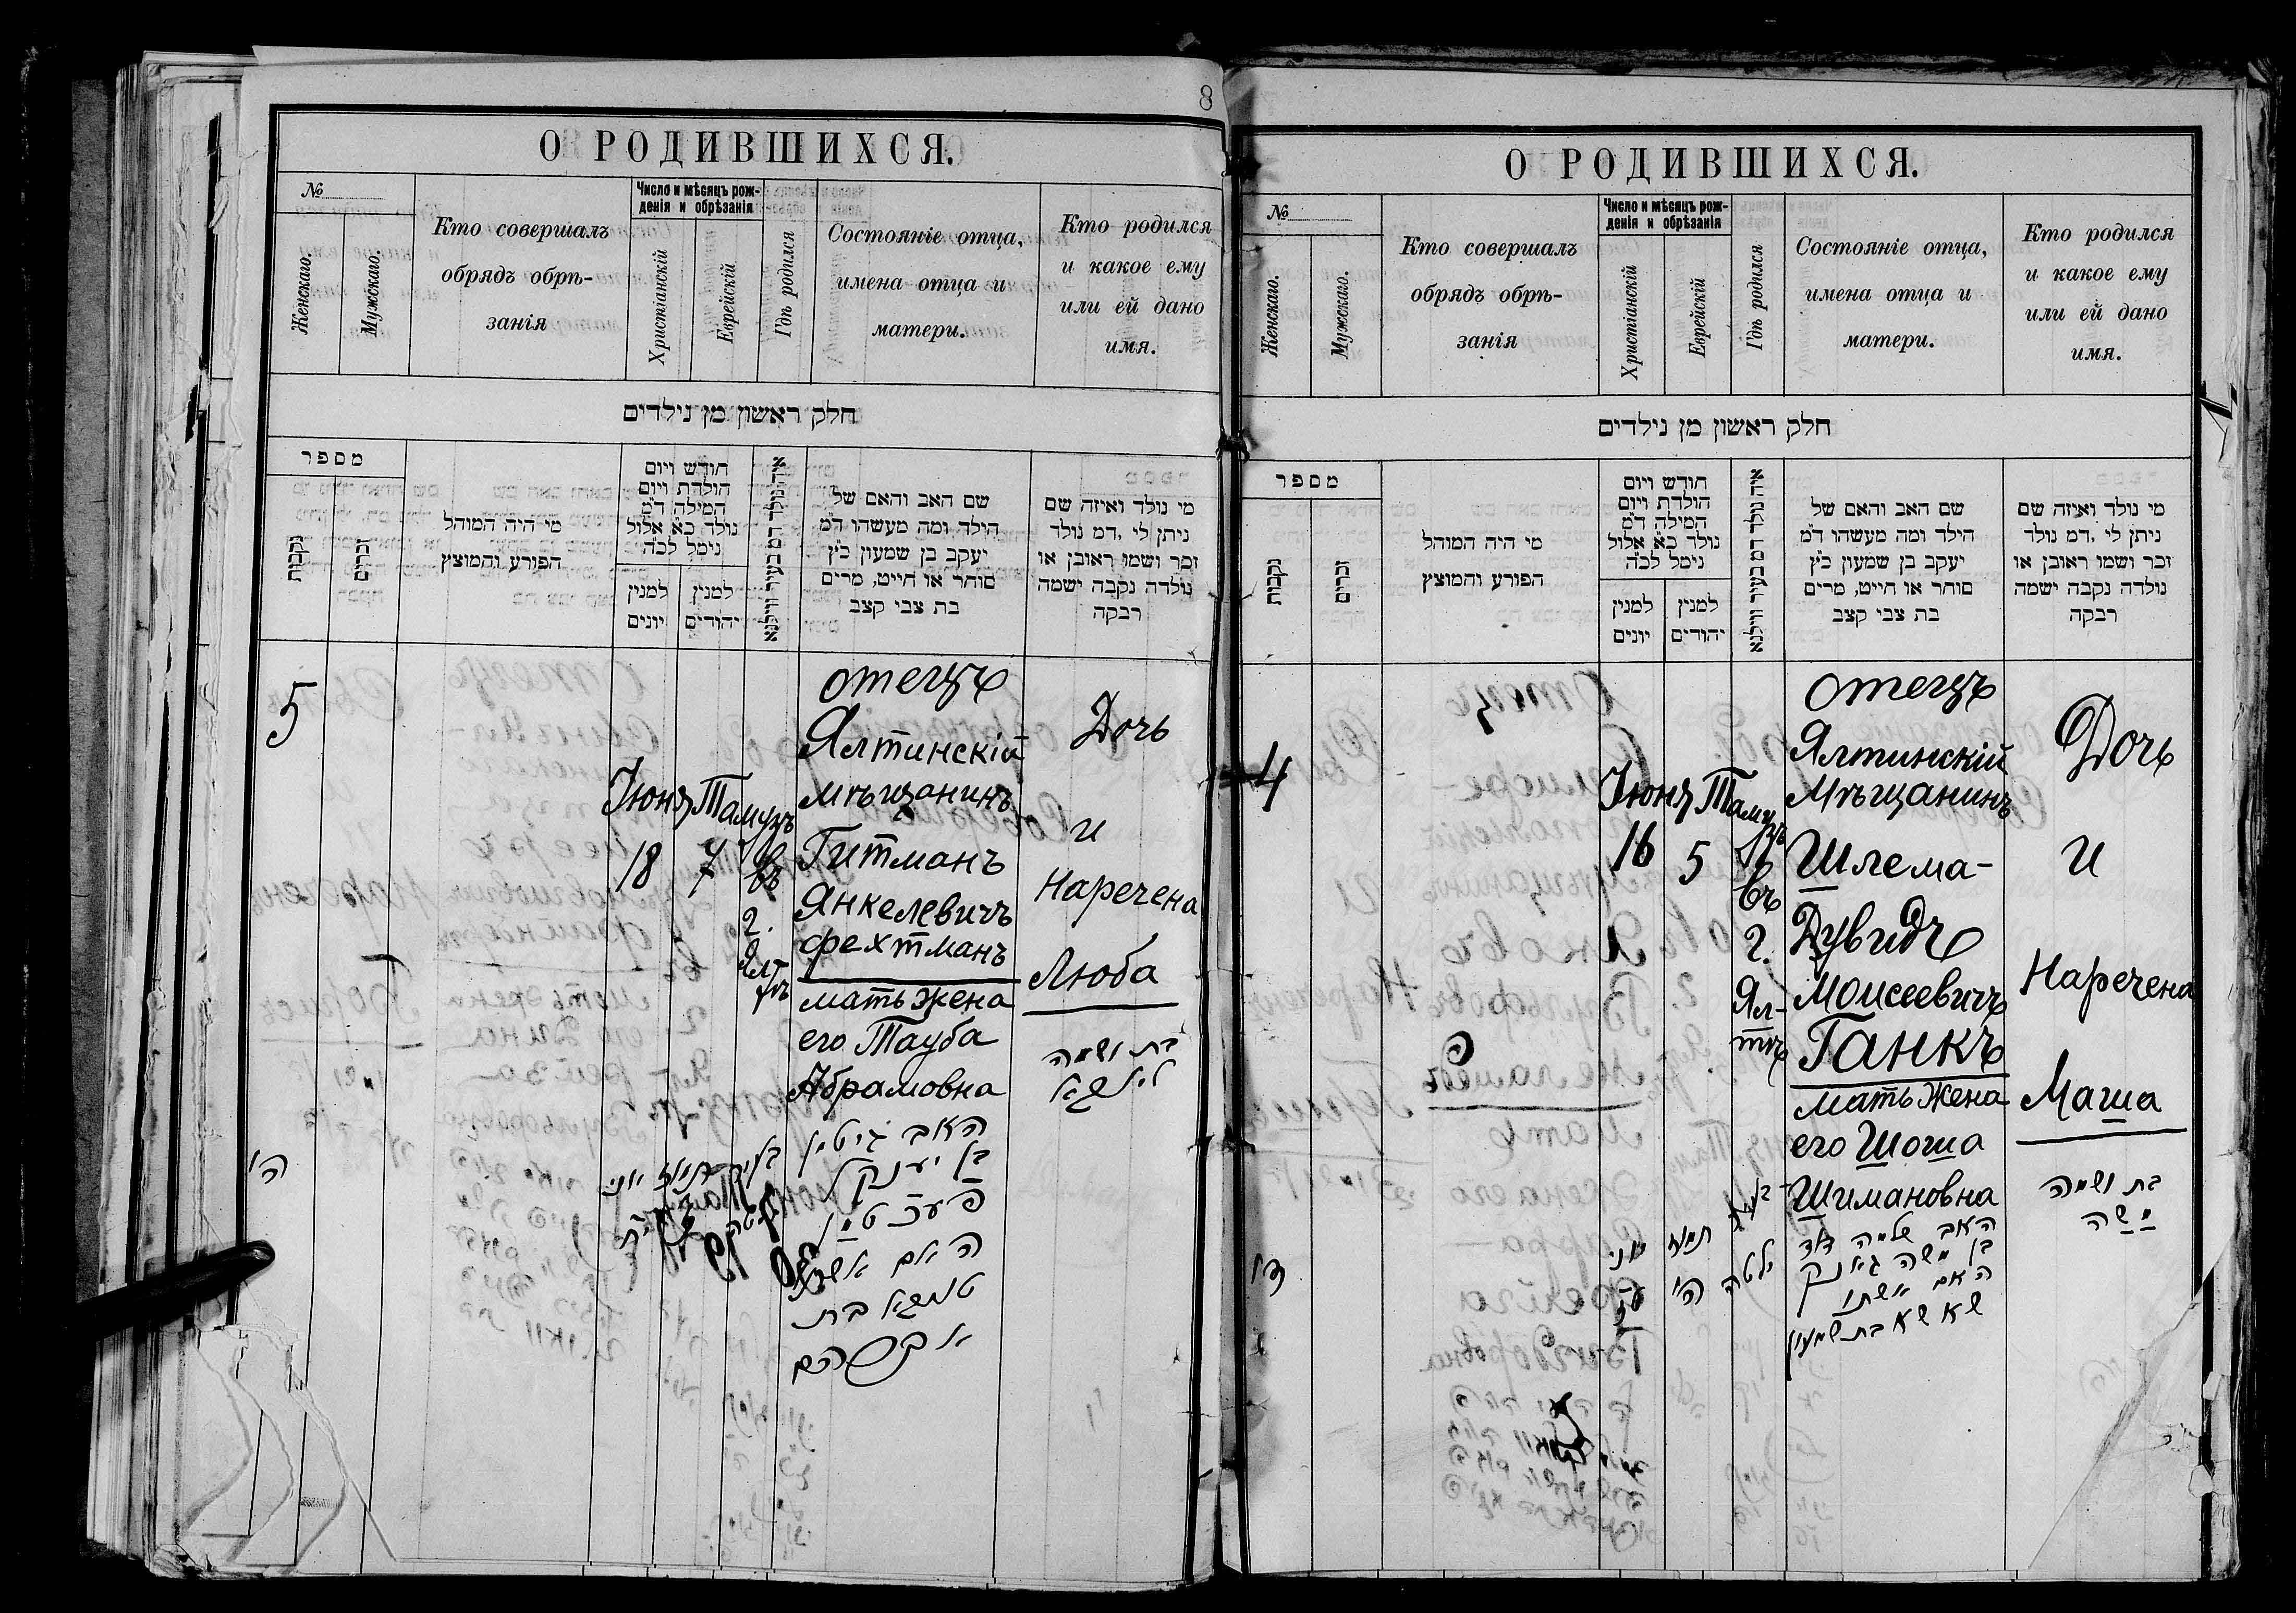 8
О РОДИВШИХСЯ.
№
Женскаго.
Мужскаго.
Кто совершалъ
обрядъ обрѣ-
занія
Число и мѣсяцъ рож-
денія и обрѣзанія
Христіанскій
Еврейскій
Гдѣ родился
Состояніе отца,
имена отца и
матери.
Кто родился
и какое ему
или ей дано
имя.
חלק ראשון מן נילדים
מספר
נקבות
זכרים
מי היה המוהל
הפורע והמוצץ
חודש ויום
הולדת ויום
המילה ד"מ
נולד כ"א אלול
נימל לכ"ה
למנין
יונים
למנין
יהודים
איה נולד דמ בעיר ווילנא
שם האב והאם של
הילד ומה מעשהו ד"מ
יעקב בן שמעון כ"ץ
סוחר או חייט, מרים
בת צבי קצב
מי נולד ואיזה שם
ניתן לו, דמ נולד
זכר ושמו ראובן או
נולדה נקבה ישמה
רבקה
5
Іюня
18
Тамузъ
7
въ
г.
Ял
тѣ
отецъ
Ялтинскій
мѣщанинъ
Гитманъ
Янкелевичъ
Фехтманъ
мать жена
его Тауба
Абрамовна
Дочь
и
Наречена
Люба
בת ושמה
ליובא
ה'
יוני
תמוז
האב גיטמן
בן יענקל
פעכטמן
האם אשתו
טויבא בת
אברהם
О РОДИВШИХСЯ.
№
Женскаго.
Мужскаго.
Кто совершалъ
обрядъ обрѣ-
занія
Число и мѣсяцъ рож-
денія и обрѣзанія
Христіанскій
Еврейскій
Гдѣ родился
Состояніе отца,
имена отца и
матери.
Кто родился
и какое ему
или ей дано
имя.
חלק ראשון מן נילדים
מספר
נקבות
זכרים
מי היה המוהל
הפורע והמוצץ
חודש ויום
הולדת ויום
המילה ד"מ
נולד כ"א אלול
נימל לכ"ה
למנין
יונים
למנין
יהודים
איה נולד דמ בעיר ווילנא
שם האב והאם של
הילד ומה מעשהו ד"מ
יעקב בן שמעון כ"ץ
סוחר או חייט, מרים
בת צבי קצב
מי נולד ואיזה שם
ניתן לו, דמ נולד
זכר ושמו ראובן או
נולדה נקבה ישמה
רבקה
4
Іюня
16
Тамузъ
5
въ
г.
Ял-
тѣ
отецъ
Ялтинскій
Мѣщанинъ
Шлема-
Дувидъ
Моисеевичъ
Ганкъ
мать жена
его Шоша
Шимановна
Дочь
и
Наречена
Маша
בת ושמה
משה
ד'
יוני
תמוז
ה'
ילטה
האב שלמה דוד
בן משה גאנק
האם אשתו
שאשא בת שמעון